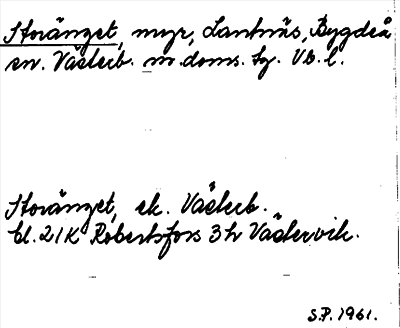 Storänget, myr, Lantnäs, Bygdeå
sn. Västerb. n. doms. tg. Vb. l.
Storänget, ek. Västerb.
bl. 21K Robertsfors 3h Västervik.
S.P. 1961.